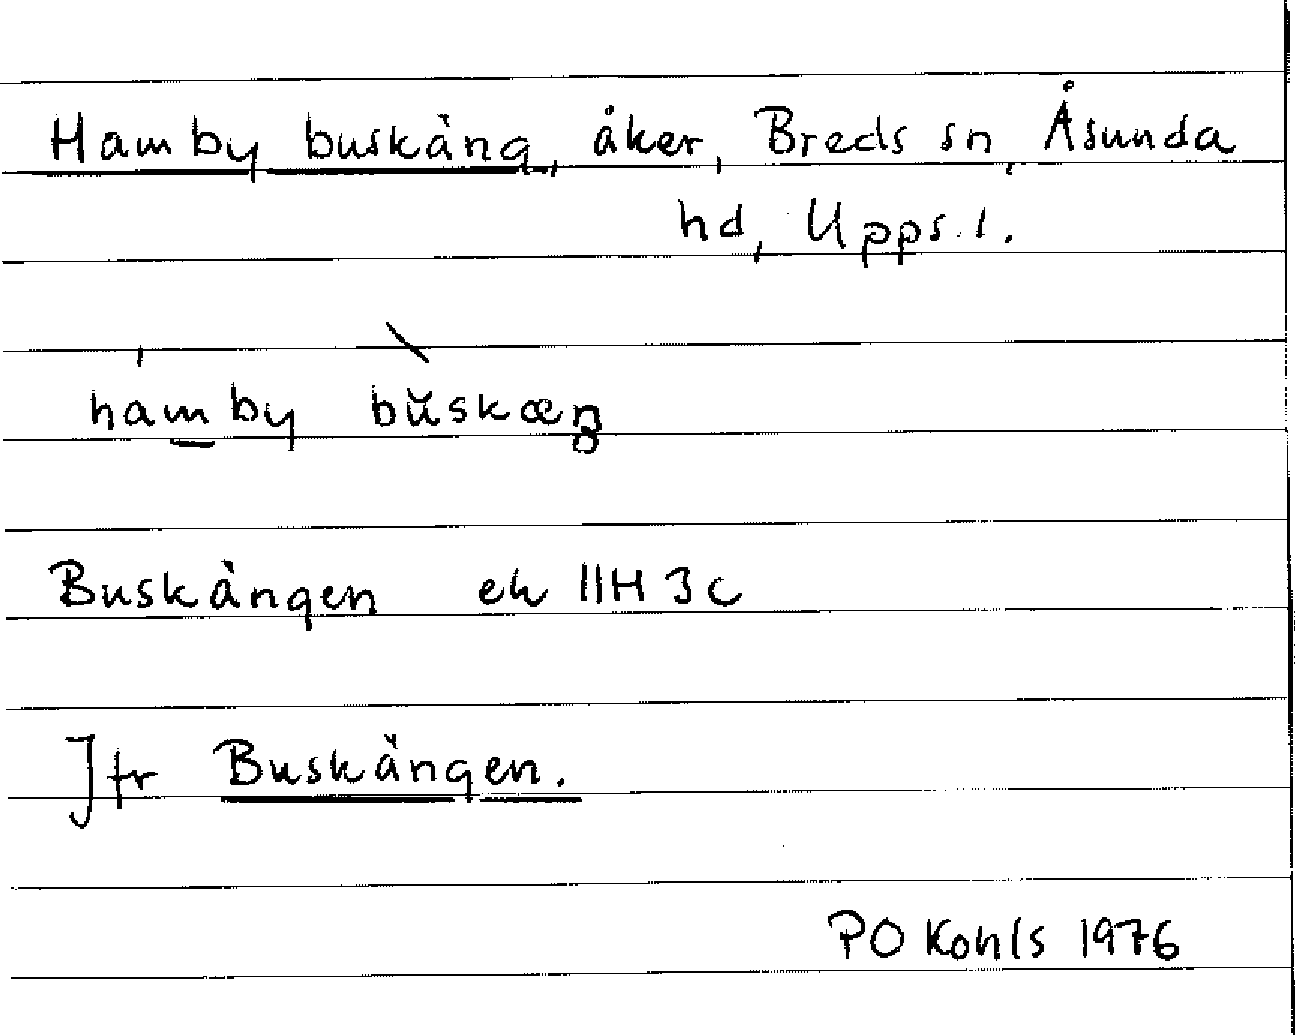 Hamby buskäng, åker, Breds sn, Åsunda
hd, Upps. l.
hamby bŭskæŋ
Buskängen ek 11H 3c
Jfr Buskängen.
PO Kohls 1976